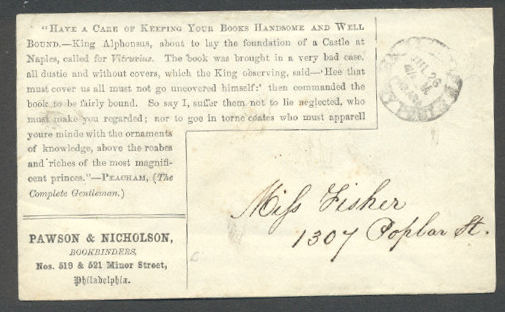 "HAVE A CARE OF KEEPING YOUR BOOKS HANDSOME AND WELL
BOUND.—King Alphonsus, about to lay the foundation of a Castle at
Naples, called for Vitruvius. The book was brought in a very bad case,
all dustie and without covers, which the King observing, said—'Hee that
must cover us all must not go uncovered himself:' then commanded the
book to be fairly bound. So say I, suffer them not to lie neglected, who
must make you regarded; nor to goe in torne coates who must apparell
youre minde with the ornaments
of knowledge, above the roabes
and riches of the most magnifi-
cent princes."—PEACHAM, (The
Complete Gentleman.)
PAWSON & NICHOLSON,
BOOKBINDERS,
Nos. 519 & 521 Minor Street,
Philadelphia.
JUL 26
Miss Fisher
1307 Poplar St.